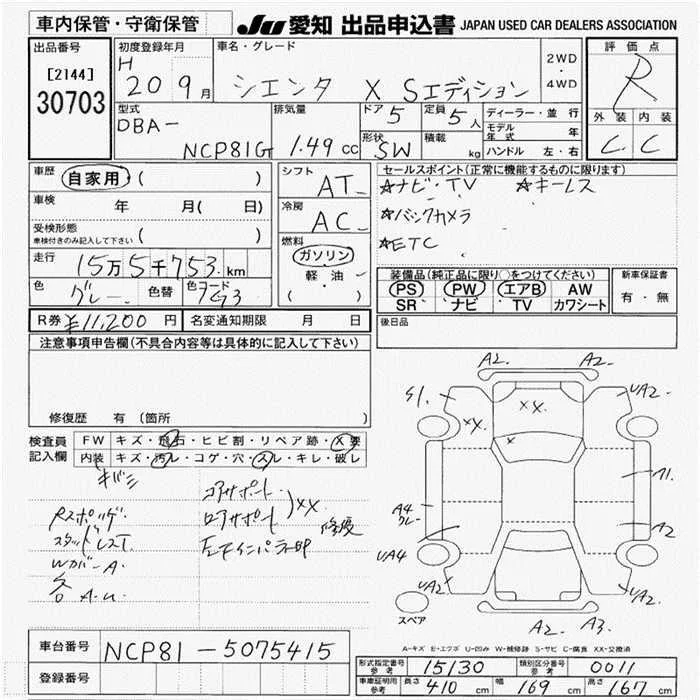 車内保管・守衛保管
JU 愛知 出品申込書 JAPAN USED CAR DEALERS ASSOCIATION
出品番号
[2144]
30703
初度登録年月
H 20 9月
車名・グレード
シエンタ X Sエディション
2WD
・
4WD
評価点
R
外装 内装
C C
型式
DBA-
NCP81G
排気量
1.49 cc
ドア 5
定員 5人
形状 SW
積載 kg
ディーラー・並行
モデル年式 年
ハンドル 左・右
車歴 自家用 ( )
車検 年 月( 日)
受検形態
車検付きのみ記入して下さい ( )
走行 15万5千753 km
色 グレー 色替 色コード
シフト AT
冷房 AC
燃料
ガソリン
軽・油
( )
セールスポイント(正常に機能するものに限ります)
☆ナビ・TV ☆キーレス
☆バックカメラ
☆ETC
装備品(純正品に限り○をつけてください)
PS PW エアB AW
SR ナビ TV カワシート
新車保証書
有・無
後日品
R券 ¥11,200 円 名変通知期限 月 日
注意事項申告欄(不具合内容等は具体的に記入して下さい)
修復歴 有 (箇所 )
検査員記入欄
FW キズ・飛石・ヒビ割・リペア跡・X要
内装 キズ・汚レ・コゲ・穴・スレ・キレ・破レ
キバミ
コアサポート
ロアサポート
XX
修復
左Fインパネ
Rスポンジ
Wカバー A
各 A.U
A2. A2.
S1. UA2.
XX.
XX.
X
A1.
A4
グレー
A2
UA4
UA2. UA2.
A2. A3.
スペア
A-キズ E-エクボ U-凹み W-補修跡 S-サビ C-腐食 XX-交換済
車台番号 NCP81-5075415
登録番号
形式指定番号参考 15130 類別区分番号参考 0011
車庫証明用参考 長さ 410 cm 幅 169 cm 高さ 167 cm